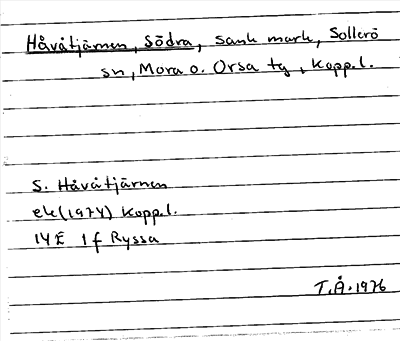 Håvåtjärnen, Södra, sank mark, Sollerö
sn, Mora o. Orsa tg, Kopp.l.
S. Håvåtjärnen
ek (1974) Kopp.l.
14E 1f Ryssa
T.Å. 1976